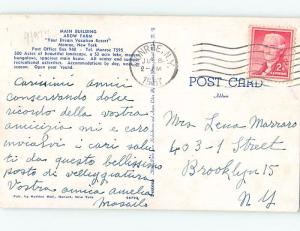 MAIN BUILDING
ARROW FARM
"Your Dream Vacation Resort"
Monroe, New York
Post Office Box 960 - Tel. Monroe 7595
500 Acres of beautiful landscape, a 52 acre lake, main
bungalows, spacious main house. All winter and summer
recreational activities. Accommodation by day, week
season. Open year 'round.
Carissimi amici
conservando dolce
ricordo della vostra
amicizia mi e caro
inviarvi i cari saluti
da questo bellissimo
posto di velleggiatura
Vostra amica amelia
MONROE N.Y.
PM
1957
2¢
POST CARD
Mrs Lena Marraro
403-1 Street
Brooklyn 15
N Y